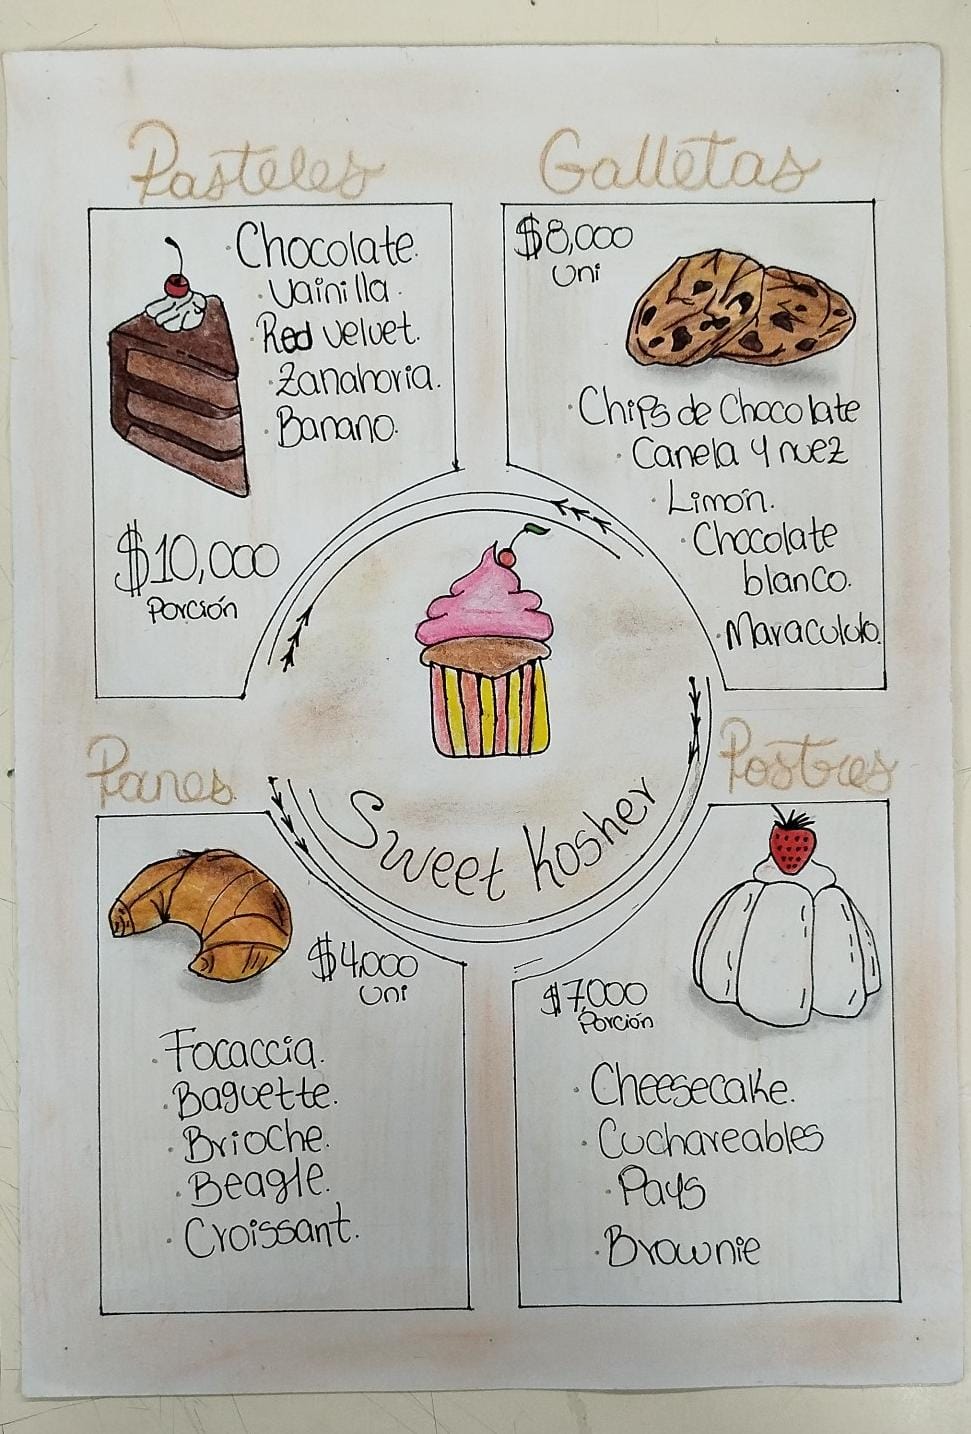 Pasteles
· Chocolate.
· Vainilla.
· Red velvet.
· Zanahoria.
· Banano.
$10,000
Porción
Galletas
$8,000
Uni
· Chips de Chocolate
· Canela y nuez
· Limón.
· Chocolate
blanco.
· Maracululo.
Sweet Kosher
Panes
$4,000
Uni
· Focaccia.
· Baguette.
· Brioche.
· Beagle.
· Croissant.
Postres
$7,000
Porción
· Cheesecake.
· Cuchareables
· Pays
· Brownie